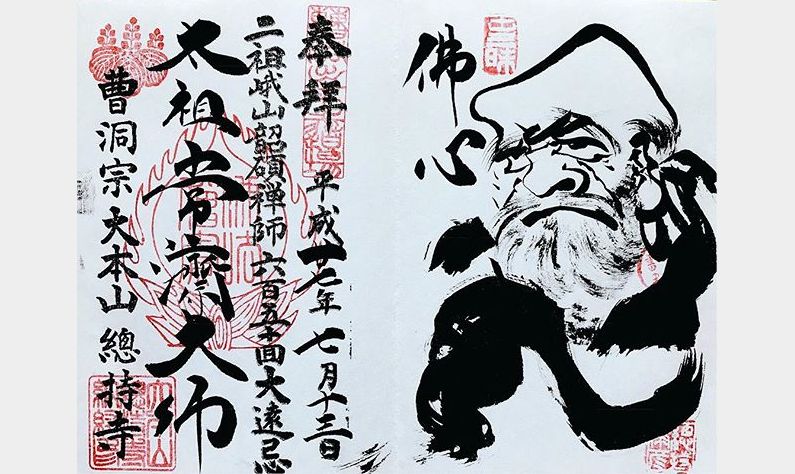 佛心
奉拝 平成廿七年 七月十三日
二祖峨山韶碩禅師 六百五十回大遠忌
太祖常濟大師
曹洞宗大本山總持寺